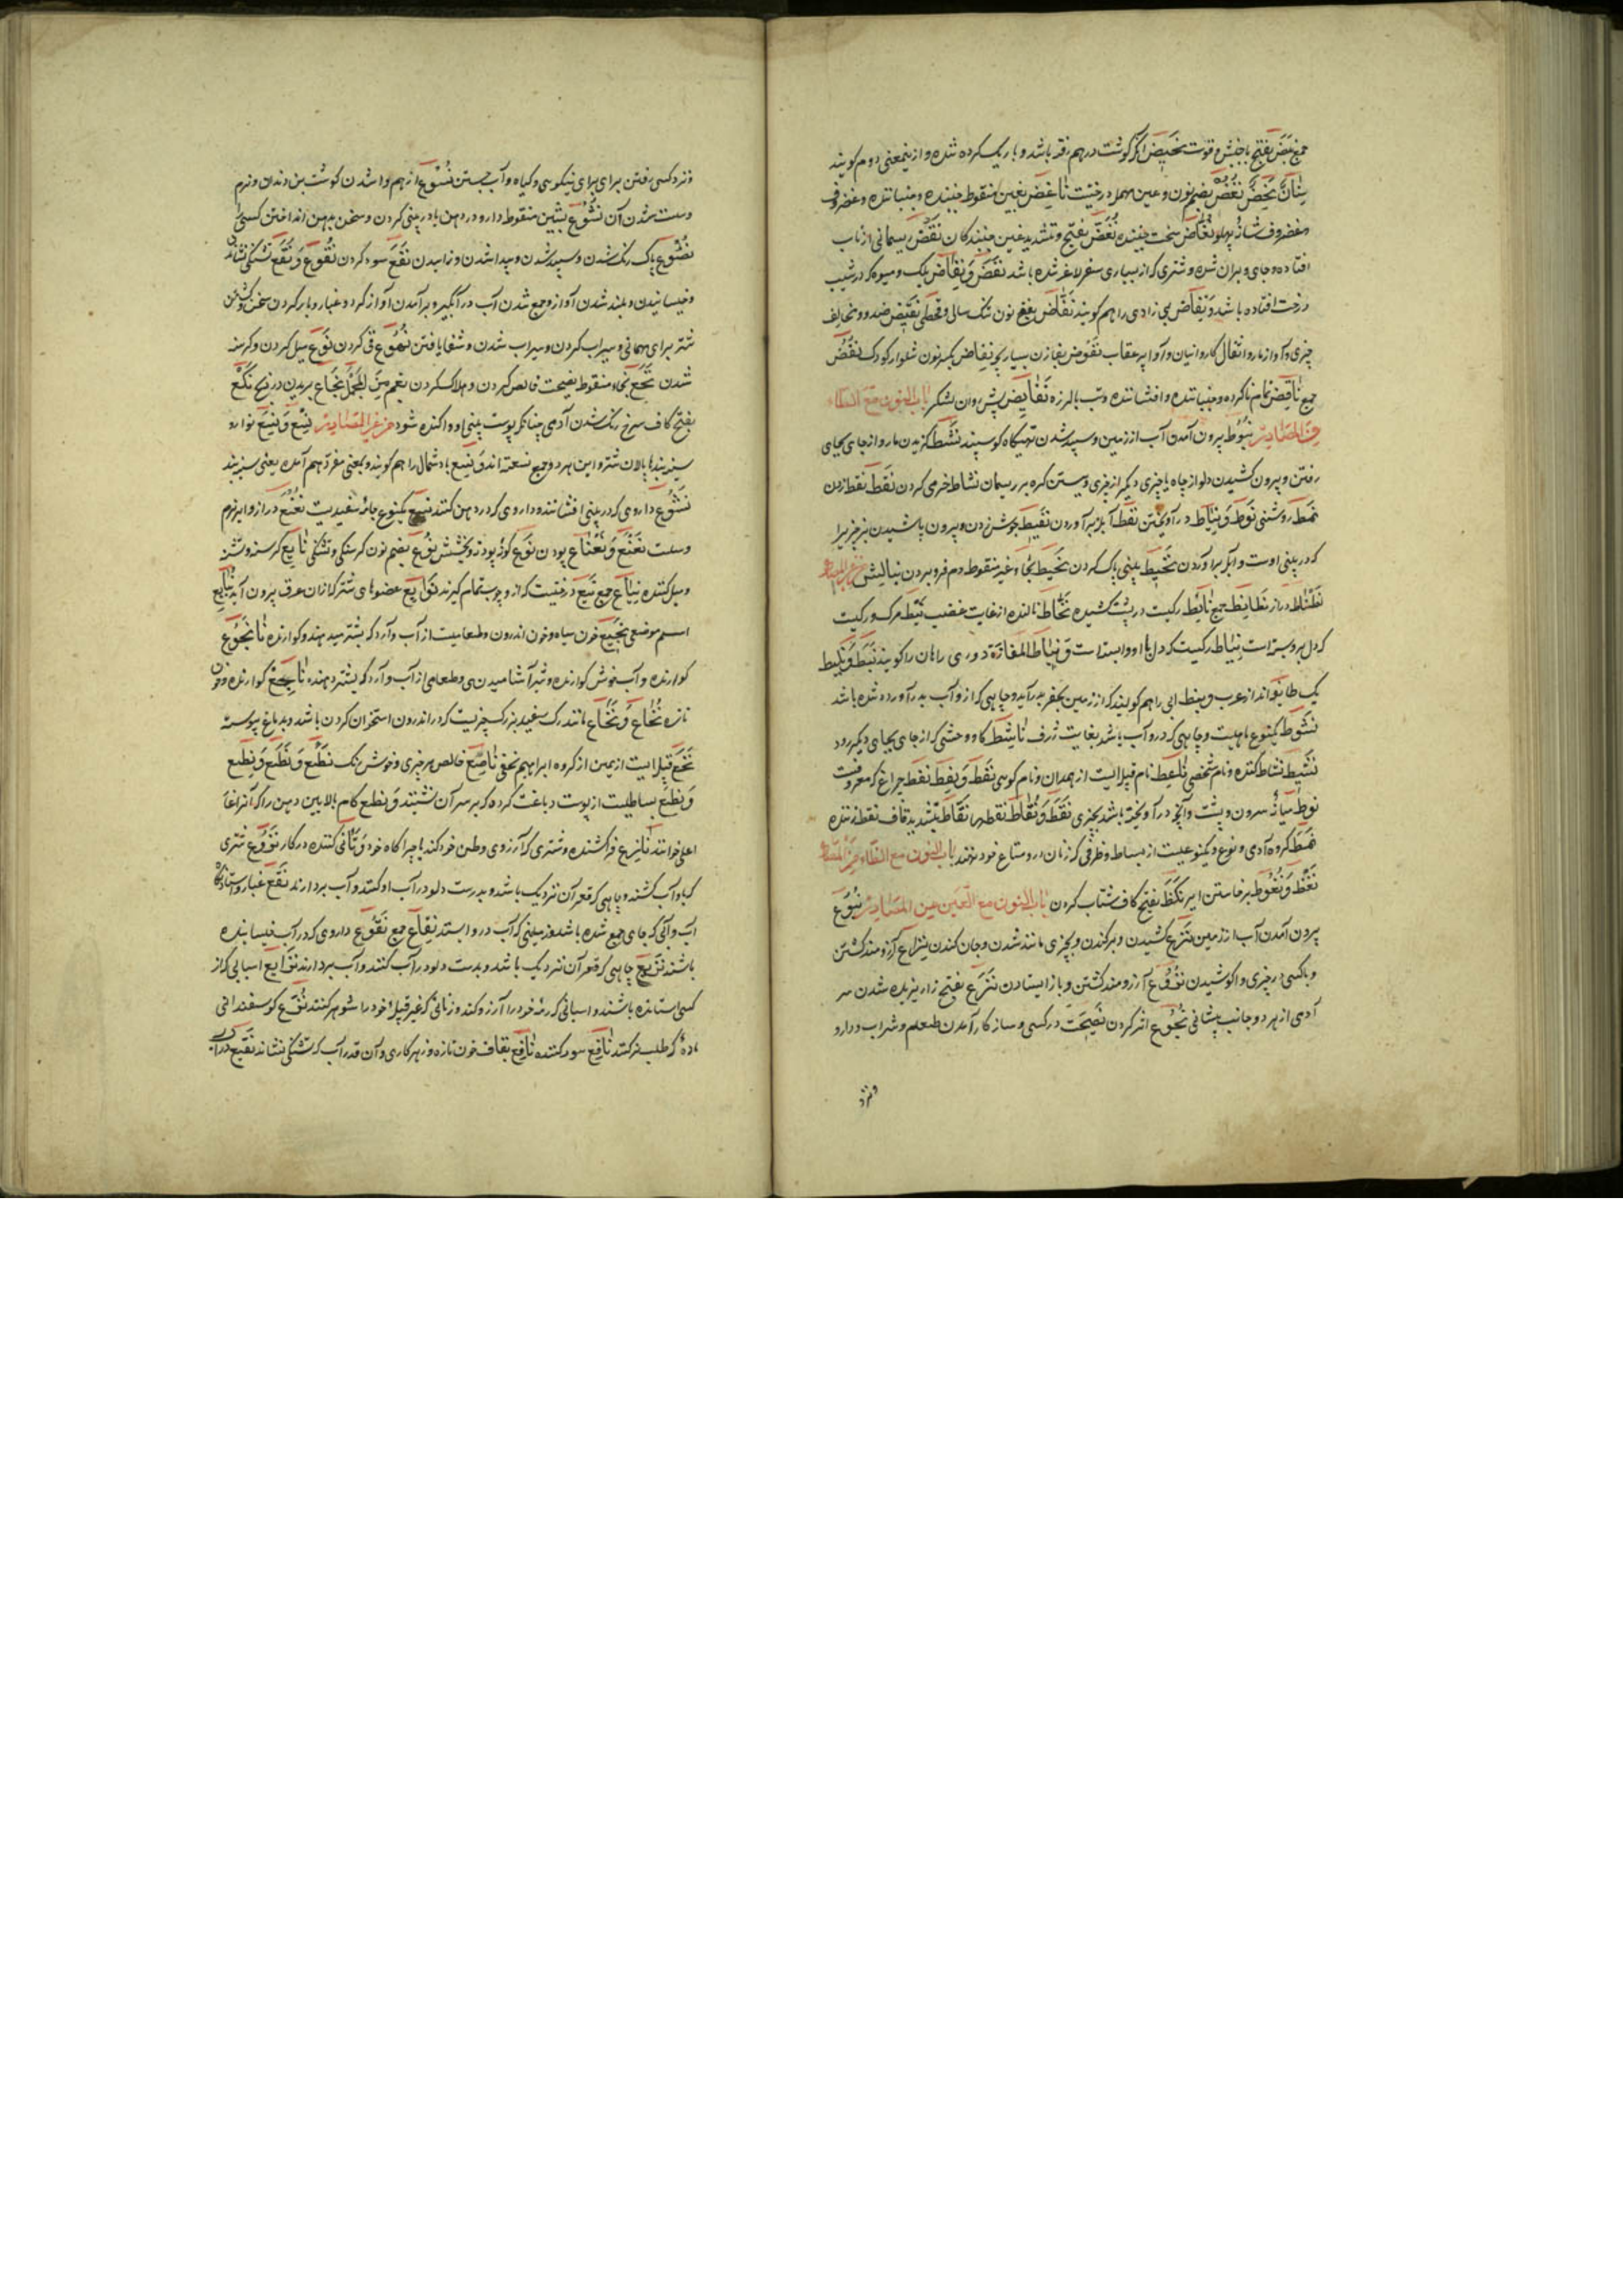 جمع نبض بفتح با جنبش و قوت نحیض انکه گوشت در هم رفته باشد و باریک کرده شده و ازینمعنی دوم گویند
سنان نحیض نغض بضم نون و عین مهمله درختیست ناغض بغین منقوطه جنبنده و جنباننده و غضروف
و غضروف شانه پهلو نغاض سخت جنبنده نغض بفتح و تشدید غین جنبندگان نقض ریسمانی از تاب
افتاده و جای ویران شده و شتری که از بسیاری سفر لاغر شده باشد نفض و نفاض بلک و میوه که در شیب
درخت افتاده باشد و نفاض بی زادی را هم گویند نفاض بفتح نون تنک سالی و قحطی نقیض ضد و مخالف
چیزی و آواز مار و اثقال کاروانیان و آواز پر عقاب نفوض بفا زن بسیار بچه نفاض بکسر نون شلوار کودک نفض
جمع ناقض تمام ناکرده و جنباننده و افشاننده و تب با لرزه نفایض پیش روان لشکر باب النون مع الطاء
من المصادر نبوط بیرون آمدن آب از زمین و سپید شدن تهیگاه گوسپند نشط گزیدن مار و از جای بجای
رفتن و بیرون کشیدن دلو از چاه یا چیزی دیگر از چیزی و بستن گره بر ریسمان نشاط خرمی کردن نقط نقطه زدن
نمط روشنی نوط و نیاط در آویختن نفط آبله برآوردن نفیط بجوش زدن و بیرون پاشیدن بز چیز را
که در بینی اوست و آبله برآوردن نخیط بینی پاک کردن نحیط بحاء غیر منقوط دم فرو بردن بنالش من غیر المصادر
نطناط دراز نطانط جمع نایط رگیست در پشت کشیده نحاط نالنده از غایت غضب نیط مرگ و رگیست
که دل برو بسته است نیاط رگیست که دل با او وابسته است و نیاط المفازة دوری راهان را گویند نبط و نبیط
یک طایفه اند از عرب و نبط آبی را هم گویند که از زمین بحفر بدر آید و چاهی که از و آب بدر آورده شده باشد
نشوط یکنوع ماهیست و چاهی که درو آب باشد بغایت ژرف ناشط گاو وحشی که از جای بجای دیگر رود
نشیط نشاط کننده و نام شخصی ناعط نام قبیله ایست از همدان و نام کوهی نفط و نفط نفط چراغ که معروفست
نوط میانه سرون و پشت و آنچه در آویخته باشد بچیزی نقط و نقاط نقطها نقاط بتشدید قاف نقطه زننده
نمط گروه آدمی و نوع و یکنوعیست از بساط و ظرفی که زنان درو متاع خود نهند باب النون مع الظاء من المصادر
نعظ و نعوظ برخاستن ایر نکظ بفتح کاف شتاب کردن باب النون مع العین من المصادر نبوع
بیرون آمدن آب از زمین نزع کشیدن و برکندن و بچیزی مانند شدن و جان کندن نزاع آرزومند گشتن
و با کسی در چیزی واکوشیدن نزوع آرزومند گشتن و باز ایستادن نزع بفتح زا ریزیده شدن سر
آدمی از هر دو جانب پیشانی نجوع اثر کردن نصیحت در کسی و سازکار آمدن طعام و شراب و دارو
و نزد
و نزد کسی رفتن برای نیکویی و گیاه و آب جستن نسوع از هم واشدن گوشت بن دندان و نرم
و سست شدن آن نشوع بشین منقوطه دارو در دهن یا در بینی کردن و سخن بدهن انداختن کسی را
نصوع پاک رنگ شدن و سپید شدن و پیدا شدن و زاییدن نفع سود کردن نقوع و نقع تشنگی نشاندن
و خیسانیدن و بلند شدن آواز و جمع شدن آب در آبگیر و برآمدن آواز گرد و غبار و پاره کردن سخن و کشتن
شتر برای مهمانی و سیراب کردن و سیراب شدن و شفا یافتن نهوع قی کردن نوع میل کردن و گرسنه
شدن نخع بخاء منقوطه نصیحت خالص کردن و هلاک کردن بغم من المجمل نخاع بریدن در ذبح نکع
بفتح کاف سرخ رنگ شدن آدمی چنانکه پوست بینی او واکنده شود من غیر المصادر نسع و نسع نوارو
سینه بندها پالان شتر و این هر دو جمع نسعته اند و نسع باد شمال را هم گویند و بمعنی مفرد هم آمده یعنی سینه بند
نشوع داروی که در بینی افشانند و داروی که در دهن کنند نصیع یکنوع جامه سفیدیست نعنع دراز و ابر نرم
و سست نعنع و نعناع پودن نوع گونه پودنه و بخشش نوع بضم نون گرسنگی و تشنگی نایع گرسنه و تشنه
و میل کننده نیاع جمع نبع درختیست که از و چوب تمام گیرند نوابع عضوهای شتر که ازان عرق بیرون آید نبایع
اسم موضعی نجیع خون سیاه و خون اندرون و طعامیست از آب و آرد که بشتر میدهند و گوارنده ناجوع
گوارنده و آب خوش گوارنده و شیر آشامیدنی و طعامی از آب و آرد که بشتر دهند ناجع گوارنده و خون
تازه نخاع و نخاع مانند رگ سفید بزرگ چیزیست که در اندرون استخوان گردن باشد و بدماغ پیوسته
نخع قبیله ایست از یمن از گروه ابراهیم نخعی ناصع خالص هر چیزی و خوش رنگ نطع و نطع و نطع
و نطع بساطیست از پوست دباغت کرده که بر سر آن نشینند و نطع کام بالایین دهن را که آنرا غا
اعلی خوانند نازع فرا کشنده و شتری که آرزوی وطن خود کند یا چراگاه خود و تانی کننده در کار نزوع شتری
که باو آب کشند و چاهی که قعر آن نزدیک باشد و بدست دلو در آب او کنند و آب بردارند نقع غبار و ستادنگاه
آب و آبی که جای جمع شده باشد و زمینی که آب درو ایستد نقاع جمع نقوع داروی که در آب خیسانیده
باشند نزیع چاهی که قعر آن نزدیک باشد و بدست دلو در آب کنند و آب بردارند نزایع اسبانی که از
کسی استانده باشند و اسبانی که رمه خود را آرزو کند و زنانی که غیر قبیله خود را شوهر کنند نزع گوسفندانی
ماده که طلب نر کنند نافع سود کننده ناقع بقاف خون تازه و زهر کاری و آن قدر آب که تشنگی نشاند نقیع